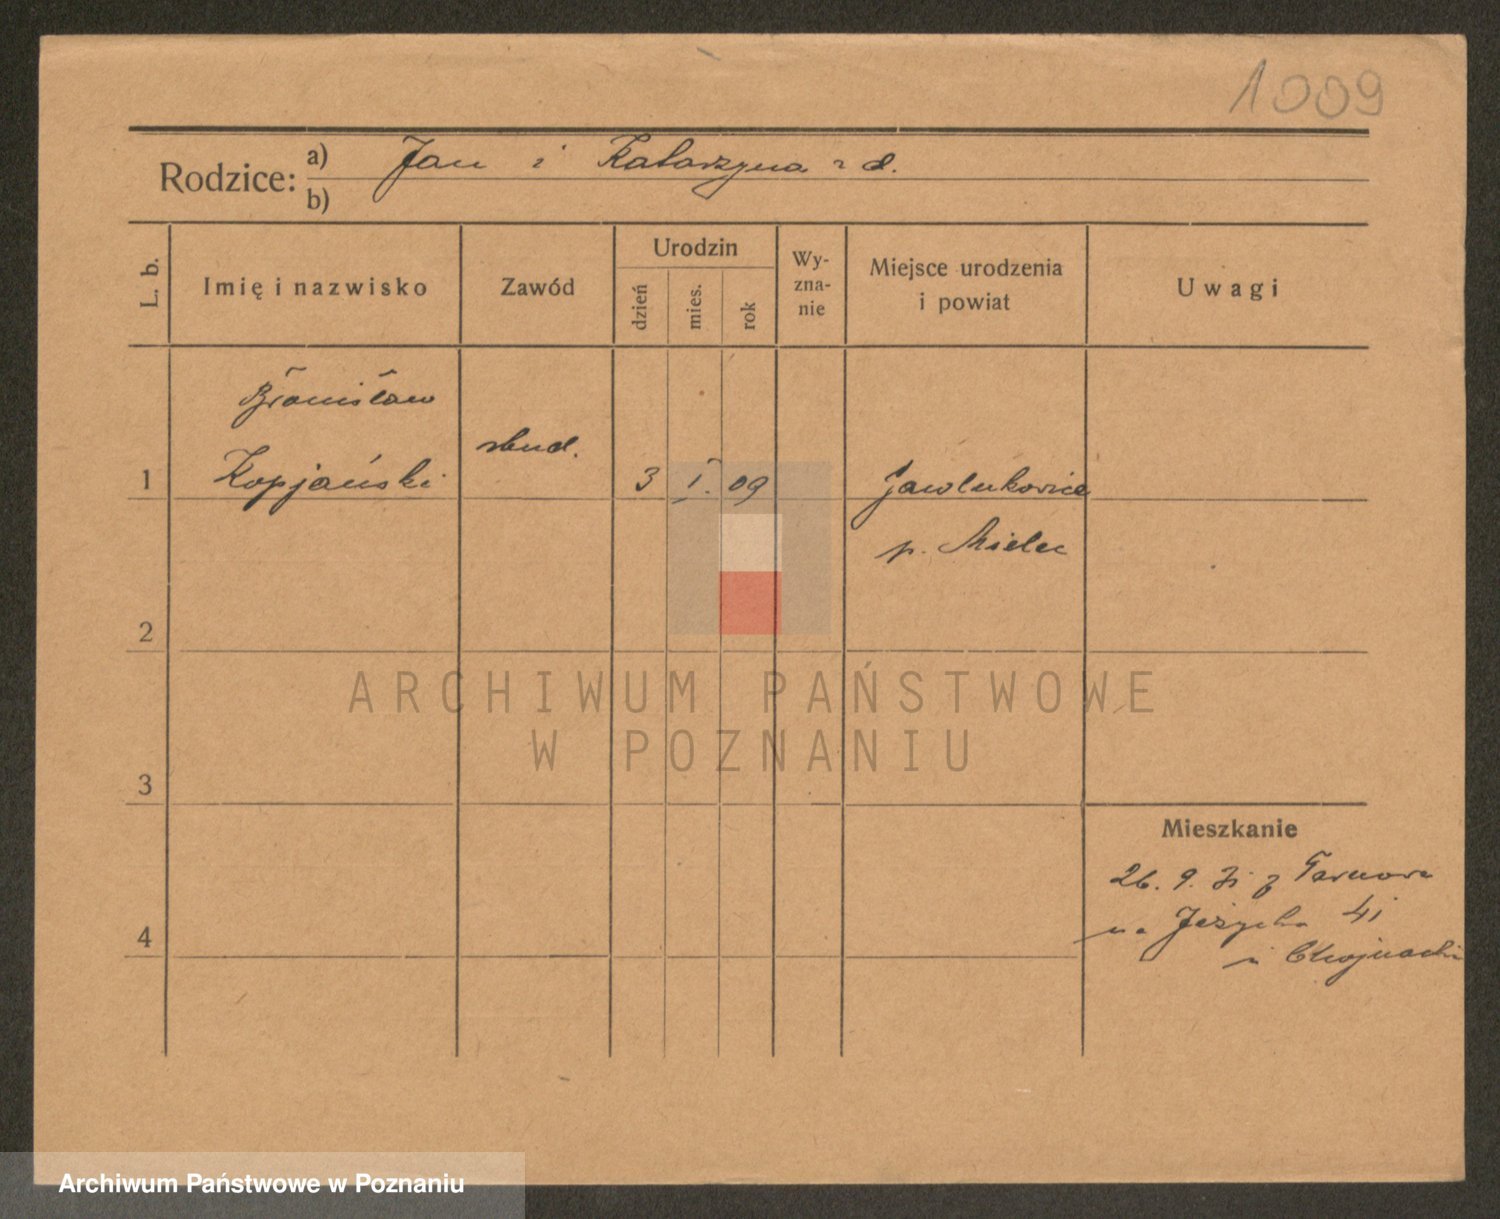 1009
Rodzice: a) Jan i Katarzyna z d.
b)
L. b.
Imię i nazwisko
Zawód
Urodzin
dzień
mies.
rok
Wy-
zna-
nie
Miejsce urodzenia
i powiat
Uwagi
Bronisław
1 Kopjański stud. 3 I. 09
p. Mielec
2
3
4
Mieszkanie
26. 9. 31 z Tarnowa
na Jeżycka 41
u Chojnacki
ARCHIWUM PAŃSTWOWE
W POZNANIU
Archiwum Państwowe w Poznaniu